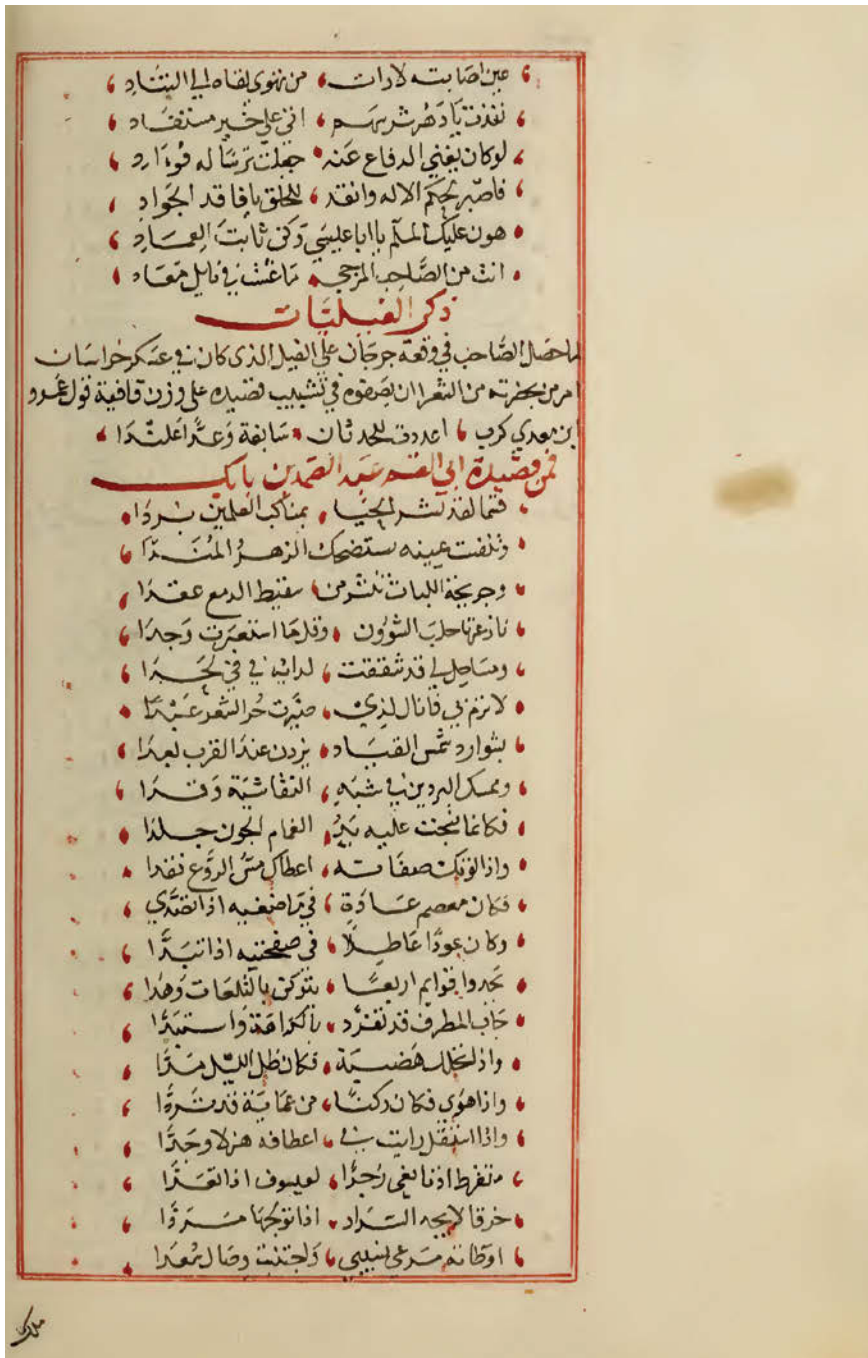 عين اصابته لارات من نهوى لقاه الى التناد
نفذت يا دهر شر سهم اني على خير مستفاد
لوكان يغني الدفاع عنه جعلت ترسا له فوءارد
فاصبر لحكم الاله وانقد للخلق يا فاقد الجواد
هون عليك الملم يا ابا عليسي وكن ثابت العماد
انت من الصاحب المرجى ما عشت في نايل معاد
ذكر الفيليات
لما حصل الصاحب في وقعة جرجان على الفيل الذى كان في عسكر خراسان
امر من بحضرته من الشعرا ان يصفوه في تشبيب قصيده على وزن قافية قول عمرو
ابن معدي كرب اعددت للحدثان سابغة وعدا علندا
فمن قصيدة ابي القسم عبد الصمد بن بابك
قسما لقد نشر الحيا بمناكب العلمين بردا
وتلفت عيينه ستضحك الزهر المندا
وجريحة اللبات تنثر من سقيط الدمع عقدا
نازعتها حلب الشؤون وقلما استعبرت وجدا
ومساجل لي قد شققت لدايه في فىّ لحدا
لا ترم بي فانا الذي صيرت حر الشعر عبدا
بشوارد شمس القياد يزدن عند القرب لبعدا
وممسك البردين في شبه النقا شية وقدا
فكانما نسجت عليه يد الغمام الجون جلدا
واذا لوتك صفاته اعطاك مس الروع نقدا
فكان معصم غادة في ماضغيه اذا تصدي
وكان عودا عاطلا في صفحتيه اذا تبدا
تحدوا قوايم اربعا يتركن بالتلعات وهدا
جاب المطرف قد تفرد بالكرامة واستبدا
واذا تخلل هضبة فكان ظل الليل مدا
واذا هوى فكان ركنا من عماية قد تردا
واذا استقل رايت في اعطافه هزلا وجدا
متفرط اذنا تعي زجرا لعيسوف اذا تعدا
خرقا لا يجد السراد اذا تولجها مردا
اوطاته مرعى نسيبي واجتنبت وصال سعدا